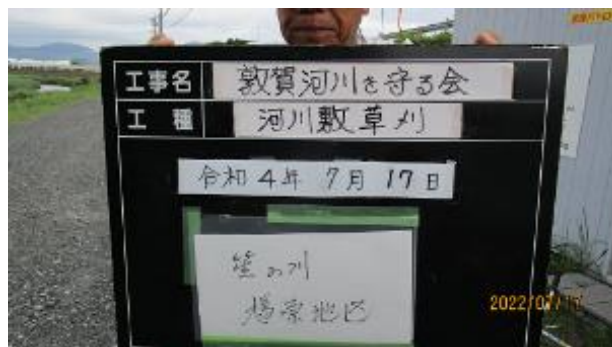 工事名 敦賀河川を守る会
工種 河川敷草刈
令和4年 7月 17日
笙の川
地区
2022/07/17